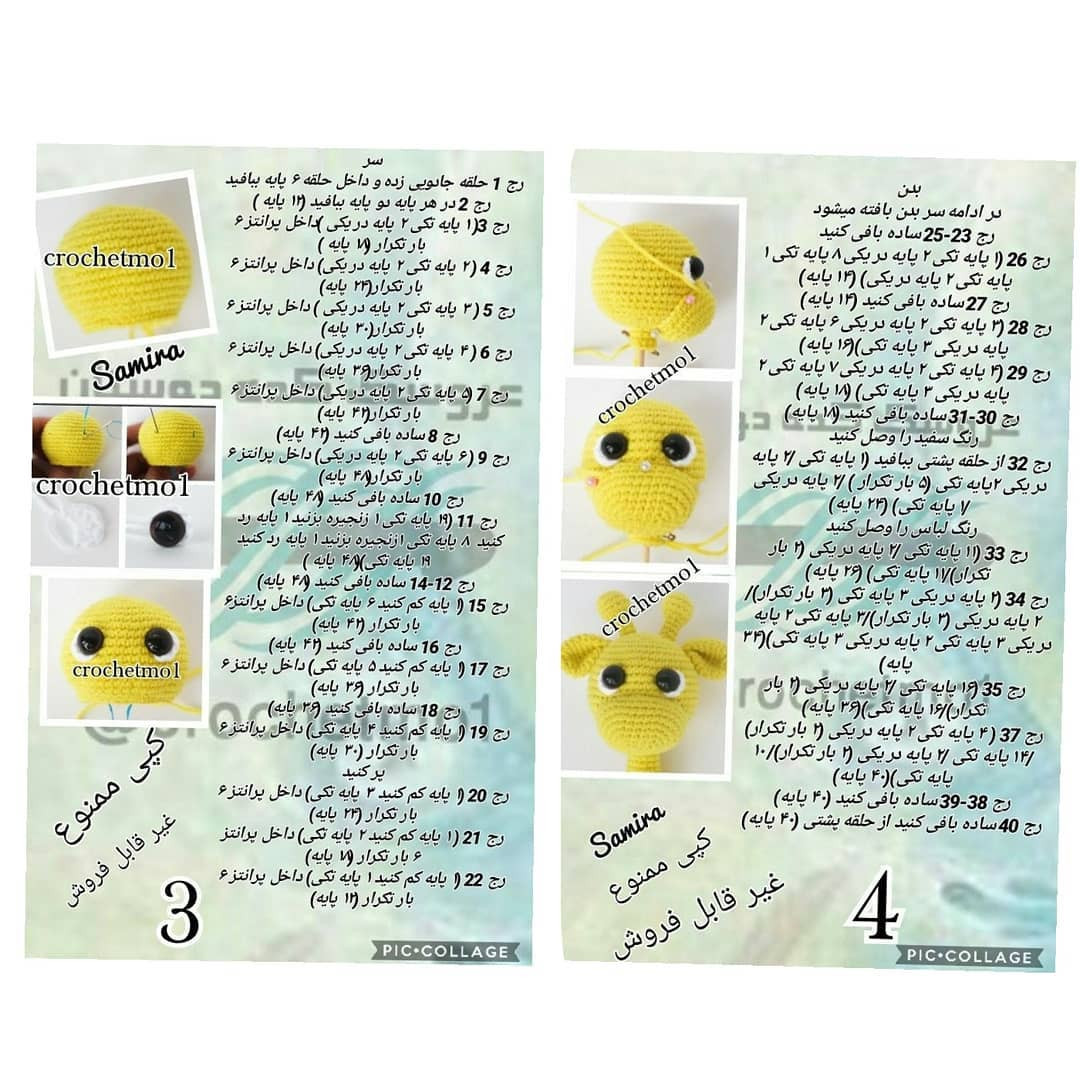 سر
رج 1 حلقه جادویی زده و داخل حلقه ۶ پایه ببافید
رج 2 در هر پایه دو پایه ببافید (۱۲ پایه )
رج 3(۱ پایه تکی ۲ پایه دریکی )داخل پرانتز ۶
بار تکرار (۱۸ پایه )
رج 4 (۲ پایه تکی ۲ پایه دریکی)داخل پرانتز ۶
بار تکرار(۲۴ پایه)
رج 5 (۳ پایه تکی ۲ پایه دریکی )داخل پرانتز ۶
بار تکرار(۳۰ پایه)
رج 6 (۴ پایه تکی ۲ پایه دریکی)داخل پرانتز ۶
بار تکرار(۳۶ پایه)
رج 7(۵ پایه تکی ۲ پایه دریکی)داخل پرانتز ۶
بار تکرار(۴۲ پایه)
رج 8 ساده بافی کنید (۴۲ پایه)
رج 9 (۶ پایه تکی ۲ پایه دریکی)داخل پرانتز ۶
بار تکرار(۴۸ پایه)
رج 10 ساده بافی کنید (۴۸ پایه)
رج 11 (۱۹ پایه تکی ۱ زنجیره بزنید ۱ پایه رد
کنید ۸ پایه تکی ۱زنجیره بزنید ۱ پایه رد کنید
۱۹ پایه تکی)(۴۸ پایه )
رج 12-14 ساده بافی کنید (۴۸ پایه)
رج 15 (۱ پایه کم کنید ۶ پایه تکی)داخل پرانتز۶
بار تکرار (۴۲ پایه)
رج 16 ساده بافی کنید (۴۲ پایه)
رج 17 (۱ پایه کم کنید ۵ پایه تکی)داخل پرانتز ۶
بار تکرار (۳۶ پایه)
رج 18 ساده بافی کنید (۳۶ پایه)
رج 19 (۱ پایه کم کنید ۴ پایه تکی)داخل پرانتز ۶
بار تکرار (۳۰ پایه)
پر کنید
رج 20 (۱ پایه کم کنید ۳ پایه تکی)داخل پرانتز ۶
بار تکرار (۲۴ پایه)
رج 21 (۱ پایه کم کنید ۲ پایه تکی)داخل پرانتز
۶ بار تکرار (۱۸ پایه)
رج 22 (۱ پایه کم کنید ۱ پایه تکی)داخل پرانتز ۶
بار تکرار (۱۲ پایه)
crochetmo1
Samira
crochetmo1
crochetmo1
کپی ممنوع
غیر قابل فروش
3
PIC•COLLAGE
بدن
در ادامه سر بدن بافته میشود
رج 23-25 ساده بافی کنید
رج 26 (۱ پایه تکی ۲ پایه دریکی ۸ پایه تکی ۱
پایه تکی ۲ پایه دریکی) (۱۴ پایه)
رج 27 ساده بافی کنید (۱۴ پایه)
رج 28 (۳ پایه تکی ۲ پایه دریکی ۶ پایه تکی ۲
پایه دریکی ۳ پایه تکی)(۱۶ پایه)
رج 29 (۴ پایه تکی ۲ پایه دریکی ۷ پایه تکی ۲
پایه دریکی ۳ پایه تکی) (۱۸ پایه)
رج 30-31 ساده بافی کنید (۱۸ پایه)
رنگ سفید را وصل کنید
رج 32 از حلقه پشتی ببافید (۱ پایه تکی /۲ پایه
دریکی ۲پایه تکی (۵ بار تکرار )/ ۲ پایه دریکی
/۱ پایه تکی) (۲۴ پایه)
رنگ لباس را وصل کنید
رج 33 (۱۱ پایه تکی /۲ پایه دریکی (۲ بار
تکرار)/۱۱ پایه تکی) (۲۶ پایه)
رج 34 (۲ پایه دریکی ۳ پایه تکی (۳ بار تکرار)/
۲ پایه دریکی (۲ بار تکرار)/۳ پایه تکی ۲ پایه
دریکی ۳ پایه تکی ۲ پایه دریکی ۳ پایه تکی)(۳۴
پایه)
رج 35 (۱۶ پایه تکی /۲ پایه دریکی (۲ بار
تکرار)/۱۶ پایه تکی)(۳۶ پایه)
رج 37 (۴ پایه تکی ۲ پایه دریکی (۲ بار تکرار)
/۱۴ پایه تکی /۲ پایه دریکی (۲ بار تکرار)/۱۰
پایه تکی)(۴۰ پایه)
رج 38-39 ساده بافی کنید (۴۰ پایه)
رج 40 ساده بافی کنید از حلقه پشتی (۴۰ پایه)
crochetmo1
crochetmo1
crochetmo1
Samira
کپی ممنوع
غیر قابل فروش
4
PIC•COLLAGE